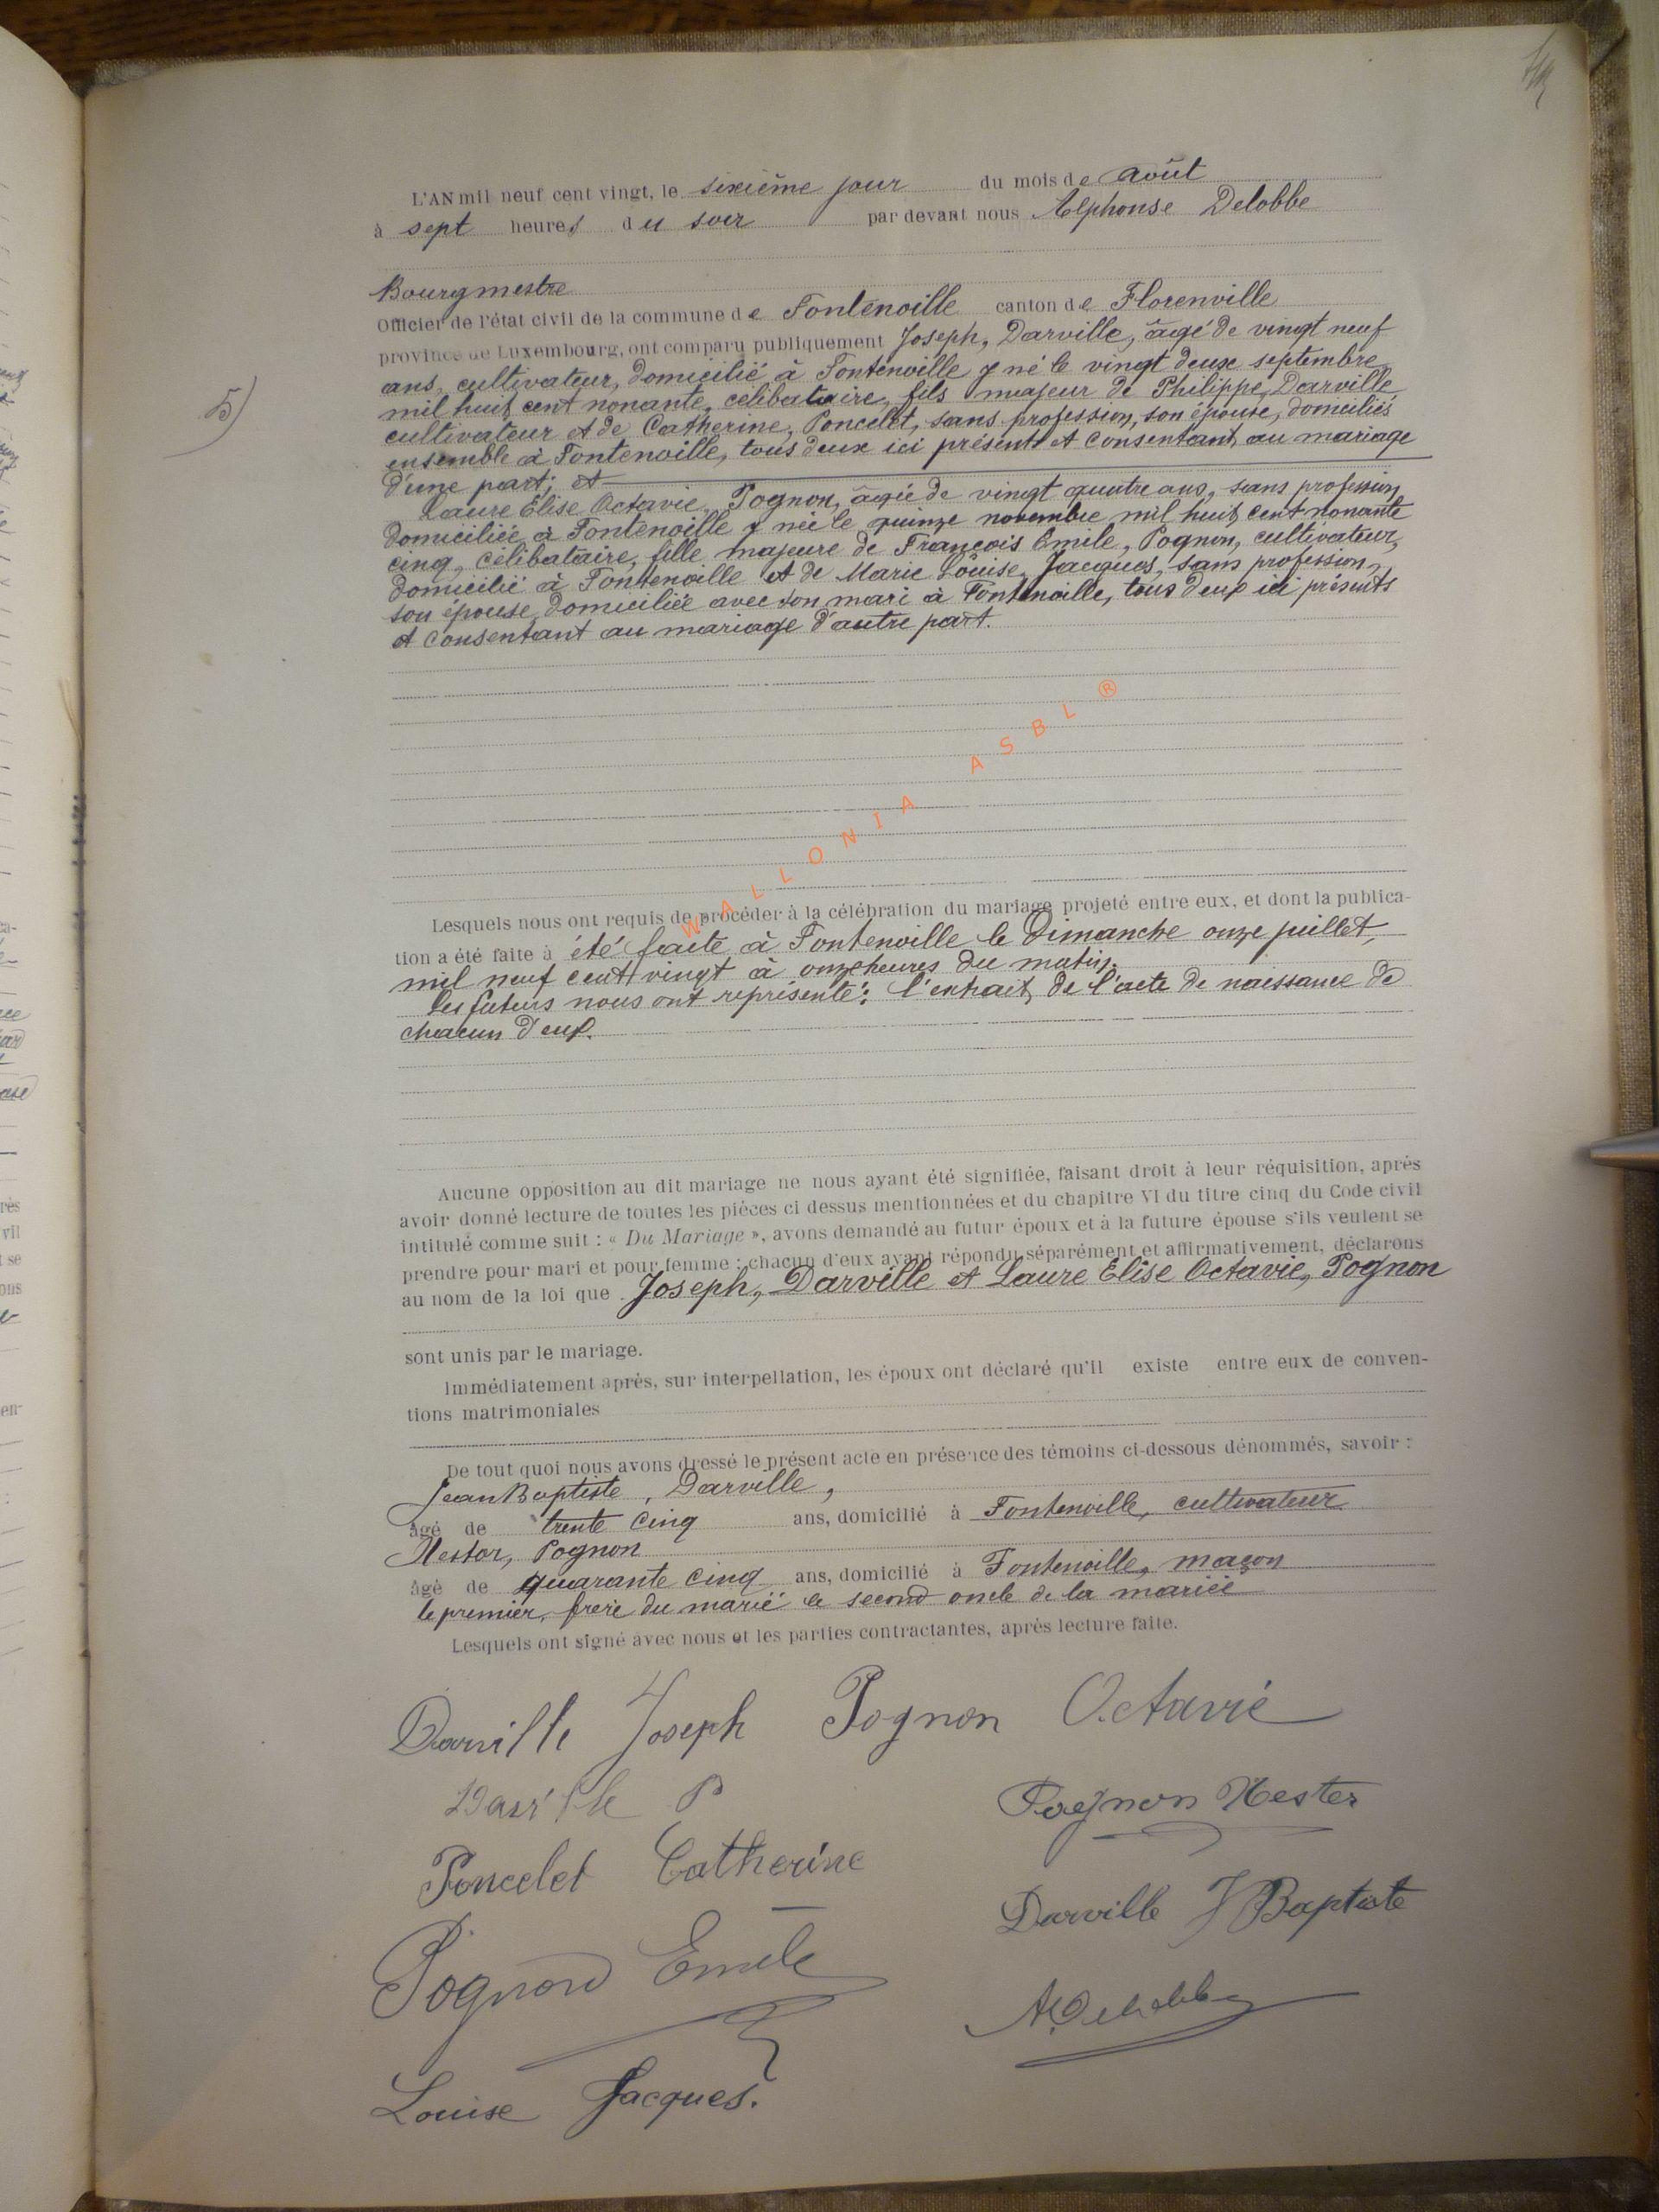 L'AN mil neuf cent vingt, le sixième jour du mois de Août
à sept heures du soir par devant nous Alphonse Delobbe
Bourgmestre
Officier de l'état civil de la commune de Fontenoille canton de Florenville
province de Luxembourg, ont comparu publiquement Joseph, Darville, âgé de vingt neuf
ans, cultivateur, domicilié à Fontenoille y né le vingt deux septembre
5)
mil huit cent nonante, célibataire, fils majeur de Philippe, Darville
cultivateur et de Catherine, Poncelet, sans profession, son épouse, domiciliés
ensemble à Fontenoille, tous deux ici présents et consentant au mariage
d'une part; et
Laure Élise Octavie, Pognon, âgée de vingt quatre ans, sans profession
domiciliée à Fontenoille y née le quinze novembre mil huit cent nonante
cinq, célibataire, fille majeure de François Emile, Pognon, cultivateur,
domicilié à Fontenoille et de Marie Louise, Jacques, sans profession,
son épouse, domiciliée avec son mari à Fontenoille, tous deux ici présents
et consentant au mariage d'autre part.
WALLONIA ASBL ®
Lesquels nous ont requis de procéder à la célébration du mariage projeté entre eux, et dont la publica-
tion a été faite à été faite à Fontenoille le Dimanche onze juillet,
mil neuf cent vingt à onze heures du matin.
Les futurs nous ont représenté: l'extrait de l'acte de naissance de
chacun d'eux.
Aucune opposition au dit mariage ne nous ayant été signifiée, faisant droit à leur réquisition, après
avoir donné lecture de toutes les pièces ci dessus mentionnées et du chapitre VI du titre cinq du Code civil
intitulé comme suit : « Du Mariage », avons demandé au futur époux et à la future épouse s'ils veulent se
prendre pour mari et pour femme ; chacun d'eux ayant répondu séparément et affirmativement, déclarons
au nom de la loi que Joseph, Darville et Laure Élise Octavie, Pognon
sont unis par le mariage.
Immédiatement après, sur interpellation, les époux ont déclaré qu'il existe entre eux de conven-
tions matrimoniales
De tout quoi nous avons dressé le présent acte en présence des témoins ci-dessous dénommés, savoir :
Jean Baptiste, Darville,
âgé de trente cinq ans, domicilié à Fontenoille, cultivateur
Nestor, Pognon
âgé de quarante cinq ans, domicilié à Fontenoille, maçon
le premier, frère du marié le second oncle de la mariée
Lesquels ont signé avec nous et les parties contractantes, après lecture faite.
Darville Joseph Pognon Octavie
Darville P
Pognon Nestor
Poncelet Catherine
Darville J Baptiste
Pognon Emile
A. Delobbe
Louise Jacques.